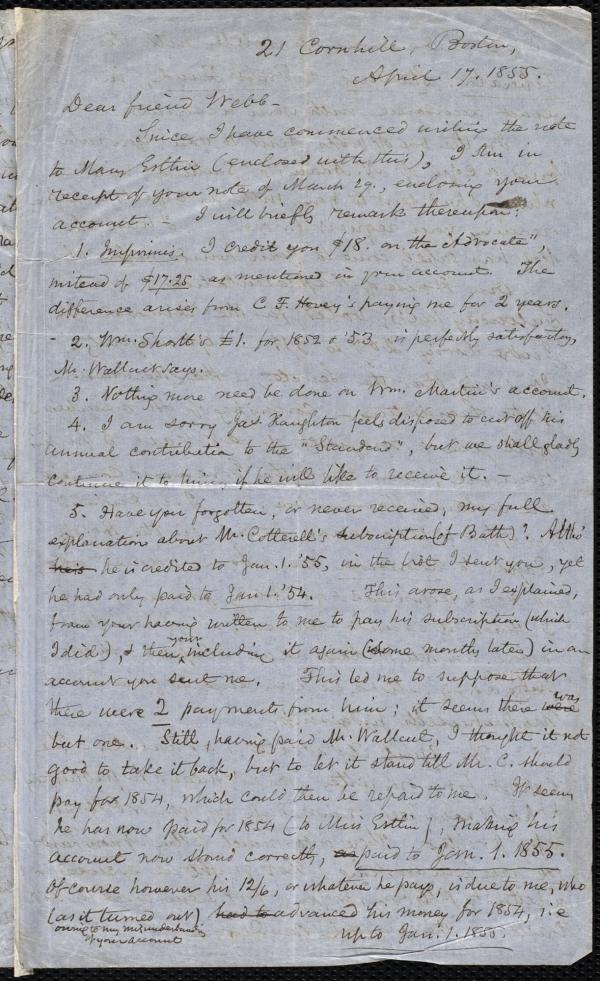 21 Cornhill, Boston,
April 17. 1855.
Dear friend Webb -
Since I have commenced writing the note
to Mary Estlin (enclosed with this), I am in
receipt of your note of March 29., enclosing your
account. - I will briefly remark thereupon:
1. Imprimis. I credit you $18. on the "Advocate",
instead of $17.25 as mentioned in your account. The
difference arises from C. F. Hovey's paying me for 2 years.
- 2. Wm. Shortt's £1. for 1852 & '53 is perfectly satisfactory,
Mr. Wallcut says.
3. Nothing more need be done on Wm. Martin's account.
4. I am sorry Jas. Haughton feels disposed to cut off his
annual contribution to the "Standard", but we shall gladly
continue it to him, if he will like to receive it. -
5. Have you forgotten, or never received, my full
explanation about Mr. Cotterell's subscription (of Bath)? Altho'
his he is credited to Jan. 1. '55, in the list I sent you, yet
he had only paid to Jan 1. '54. This arose, as I explained,
from your having written to me to pay his subscription (which
I did), & then your including it again (some months later) in an
account you sent me. This led me to suppose that
there were 2 payments from him; it seems there were was
but one. Still, having paid Mr. Wallcut, I thought it not
good to take it back, but to let it stand till Mr. C. should
pay for 1854, which could then be repaid to me. It seems
he has now paid for 1854 (to Miss Estlin), making his
account now stand correctly, as paid to Jan. 1. 1855.
Of course however his 12/6, or whatever he pays, is due to me, who
(as it turned out) had to advanced his money for 1854, i.e
owing to my misunderstanding
of your account
up to Jan. 1. 1855.